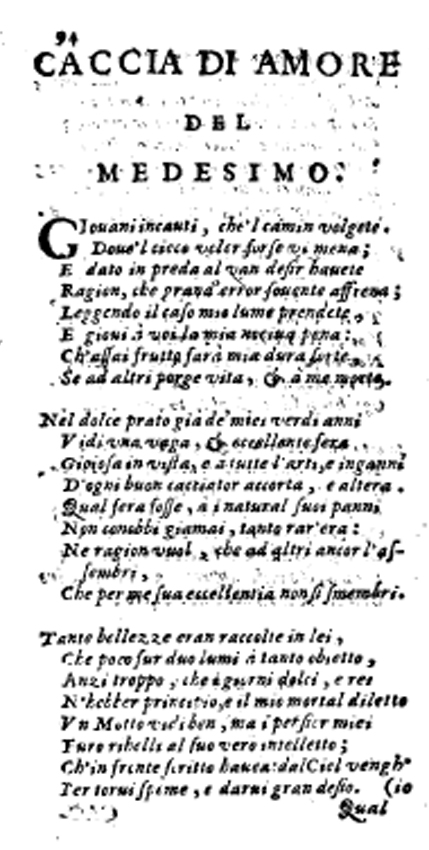 94
CACCIA DI AMORE
DEL
MEDESIMO.
GIouani incauti, che'l camin volgete.
Doue'l cieco voler forse vi mena;
E dato in preda al van desir hauete
Ragion, che grand'error souente affrena;
Leggendo il caso mio lume prendete,
E gioui à voi la mia nociua pena:
Ch'assai frutto farà mia dura sorte,
Se ad altri porge vita, & à me morte.
Nel dolce prato già de' miei verdi anni
Vidi vna vaga, & eccellente fera
Gioiosa in vista, e a tutte l'arti, e inganni
D'ogni buon cacciator accorta, e altera.
Qual fera fosse, a i natural suoi panni
Non conobbi giamai, tanto rar'era:
Ne ragion vuol, che ad altri ancor l'as-
sembri,
Che per me sua eccellentia non si smembri.
Tante bellezze eran raccolte in lei,
Che poco fur duo lumi à tanto obietto,
Anzi troppo, che i giorni dolci, e rei
N'hebber principio, e il mio mortal diletto
Vn Motto vidi ben, ma i pensier miei
Furo ribelli al suo vero intelletto;
Ch'in fronte scritto hauea: dal Ciel vengh'
Per torui speme, e darui gran desio. (io
Qual